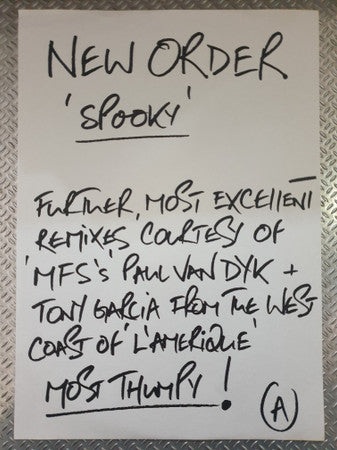 NEW ORDER
'SPOOKY'
FURTHER, MOST EXCELLENT
REMIXES COURTESY OF
'MFS's' PAUL VAN DYK +
TONY GARCIA FROM THE WEST
COAST OF 'L'AMERIQUE'
MOST THUMPY!
A